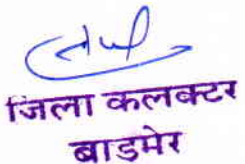 जिला कलक्टर
बाडमेर